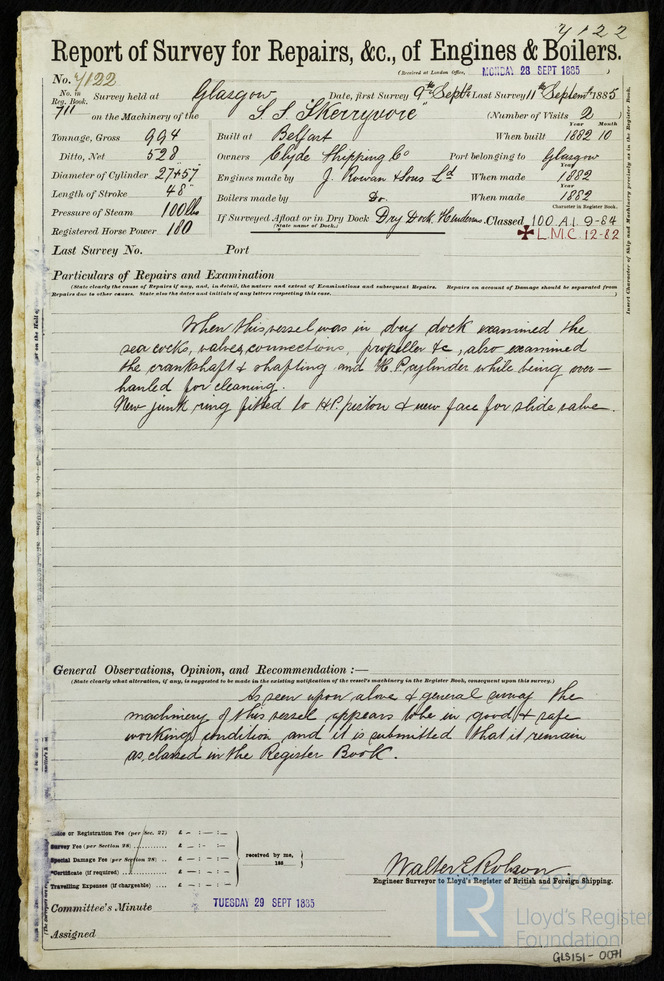 7122
Report of Survey for Repairs, &c., of Engines & Boilers.
(Received at London Office, MONDAY 28 SEPT 1885 )
No. 7122
No. in Reg. Book. Survey held at Glasgow Date, first Survey 9th Septr Last Survey 11th Septemr 1885
711 on the Machinery of the S.S. "Skerryvore" (Number of Visits 2)
Tonnage, Gross 994 Built at Belfast When built Year 1882 Month 10
Ditto, Net 528 Owners Clyde Shipping Co Port belonging to Glasgow
Diameter of Cylinder 27+57 Engines made by J. Rowan & Sons Ld When made Year 1882
Length of Stroke 48" Boilers made by Do. When made Year 1882
Pressure of Steam 100 lbs If Surveyed Afloat or in Dry Dock Dry Dock. Classed Character in Register Book. 100 A.1. 9-84
(State name of Dock.)
Registered Horse Power 180 L.M.C. 12-82
Last Survey No. Port
Particulars of Repairs and Examination
(State clearly the cause of Repairs if any, and, in detail, the nature and extent of Examinations and subsequent Repairs. Repairs on account of Damage should be separated from
Repairs due to other causes. State also the dates and initials of any letters respecting this case.)
When this vessel was in dry dock examined the
sea cocks, valves, connections, propeller &c, also examined
the crankshaft & shafting and H.P. cylinder while being over-
hauled for cleaning.
New junk ring fitted to H.P. piston & new face for slide valve.
General Observations, Opinion, and Recommendation :—
(State clearly what alteration, if any, is suggested to be made in the existing notification of the vessel's machinery in the Register Book, consequent upon this survey.)
As seen upon above & general away the
machinery of this vessel appears to be in good & safe
working condition and it is submitted that it remain
as classed in the Register Book.
or Registration Fee (per Sec. 27) £ - : - : -
Survey Fee (per Section 28) £ - : - : -
Special Damage Fee (per Section 28) £ - : - : -
Certificate (if required) £ - : - : -
Travelling Expenses (if chargeable) £ - : - : -
received by me,
188
Walter E Robson
Engineer Surveyor to Lloyd's Register of British and Foreign Shipping.
Committee's Minute TUESDAY 29 SEPT 1885
Assigned
Insert Character of Ship and Machinery precisely as in the Register Book.
LR
© 2019
Lloyd's Register
Foundation
GLS151-0071